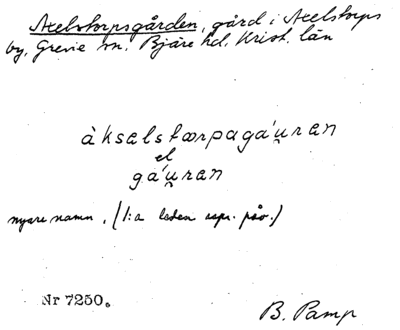 Axelstorpsgården, gård i Axelstorps
by, Grevie sn. Bjäre hd. Krist. län
àksalstɶrpagáu̯ran
el
gáu̯ran
nyare namn. (1:a leden uspr. påv.)
Nr 7250.
B. Pamp